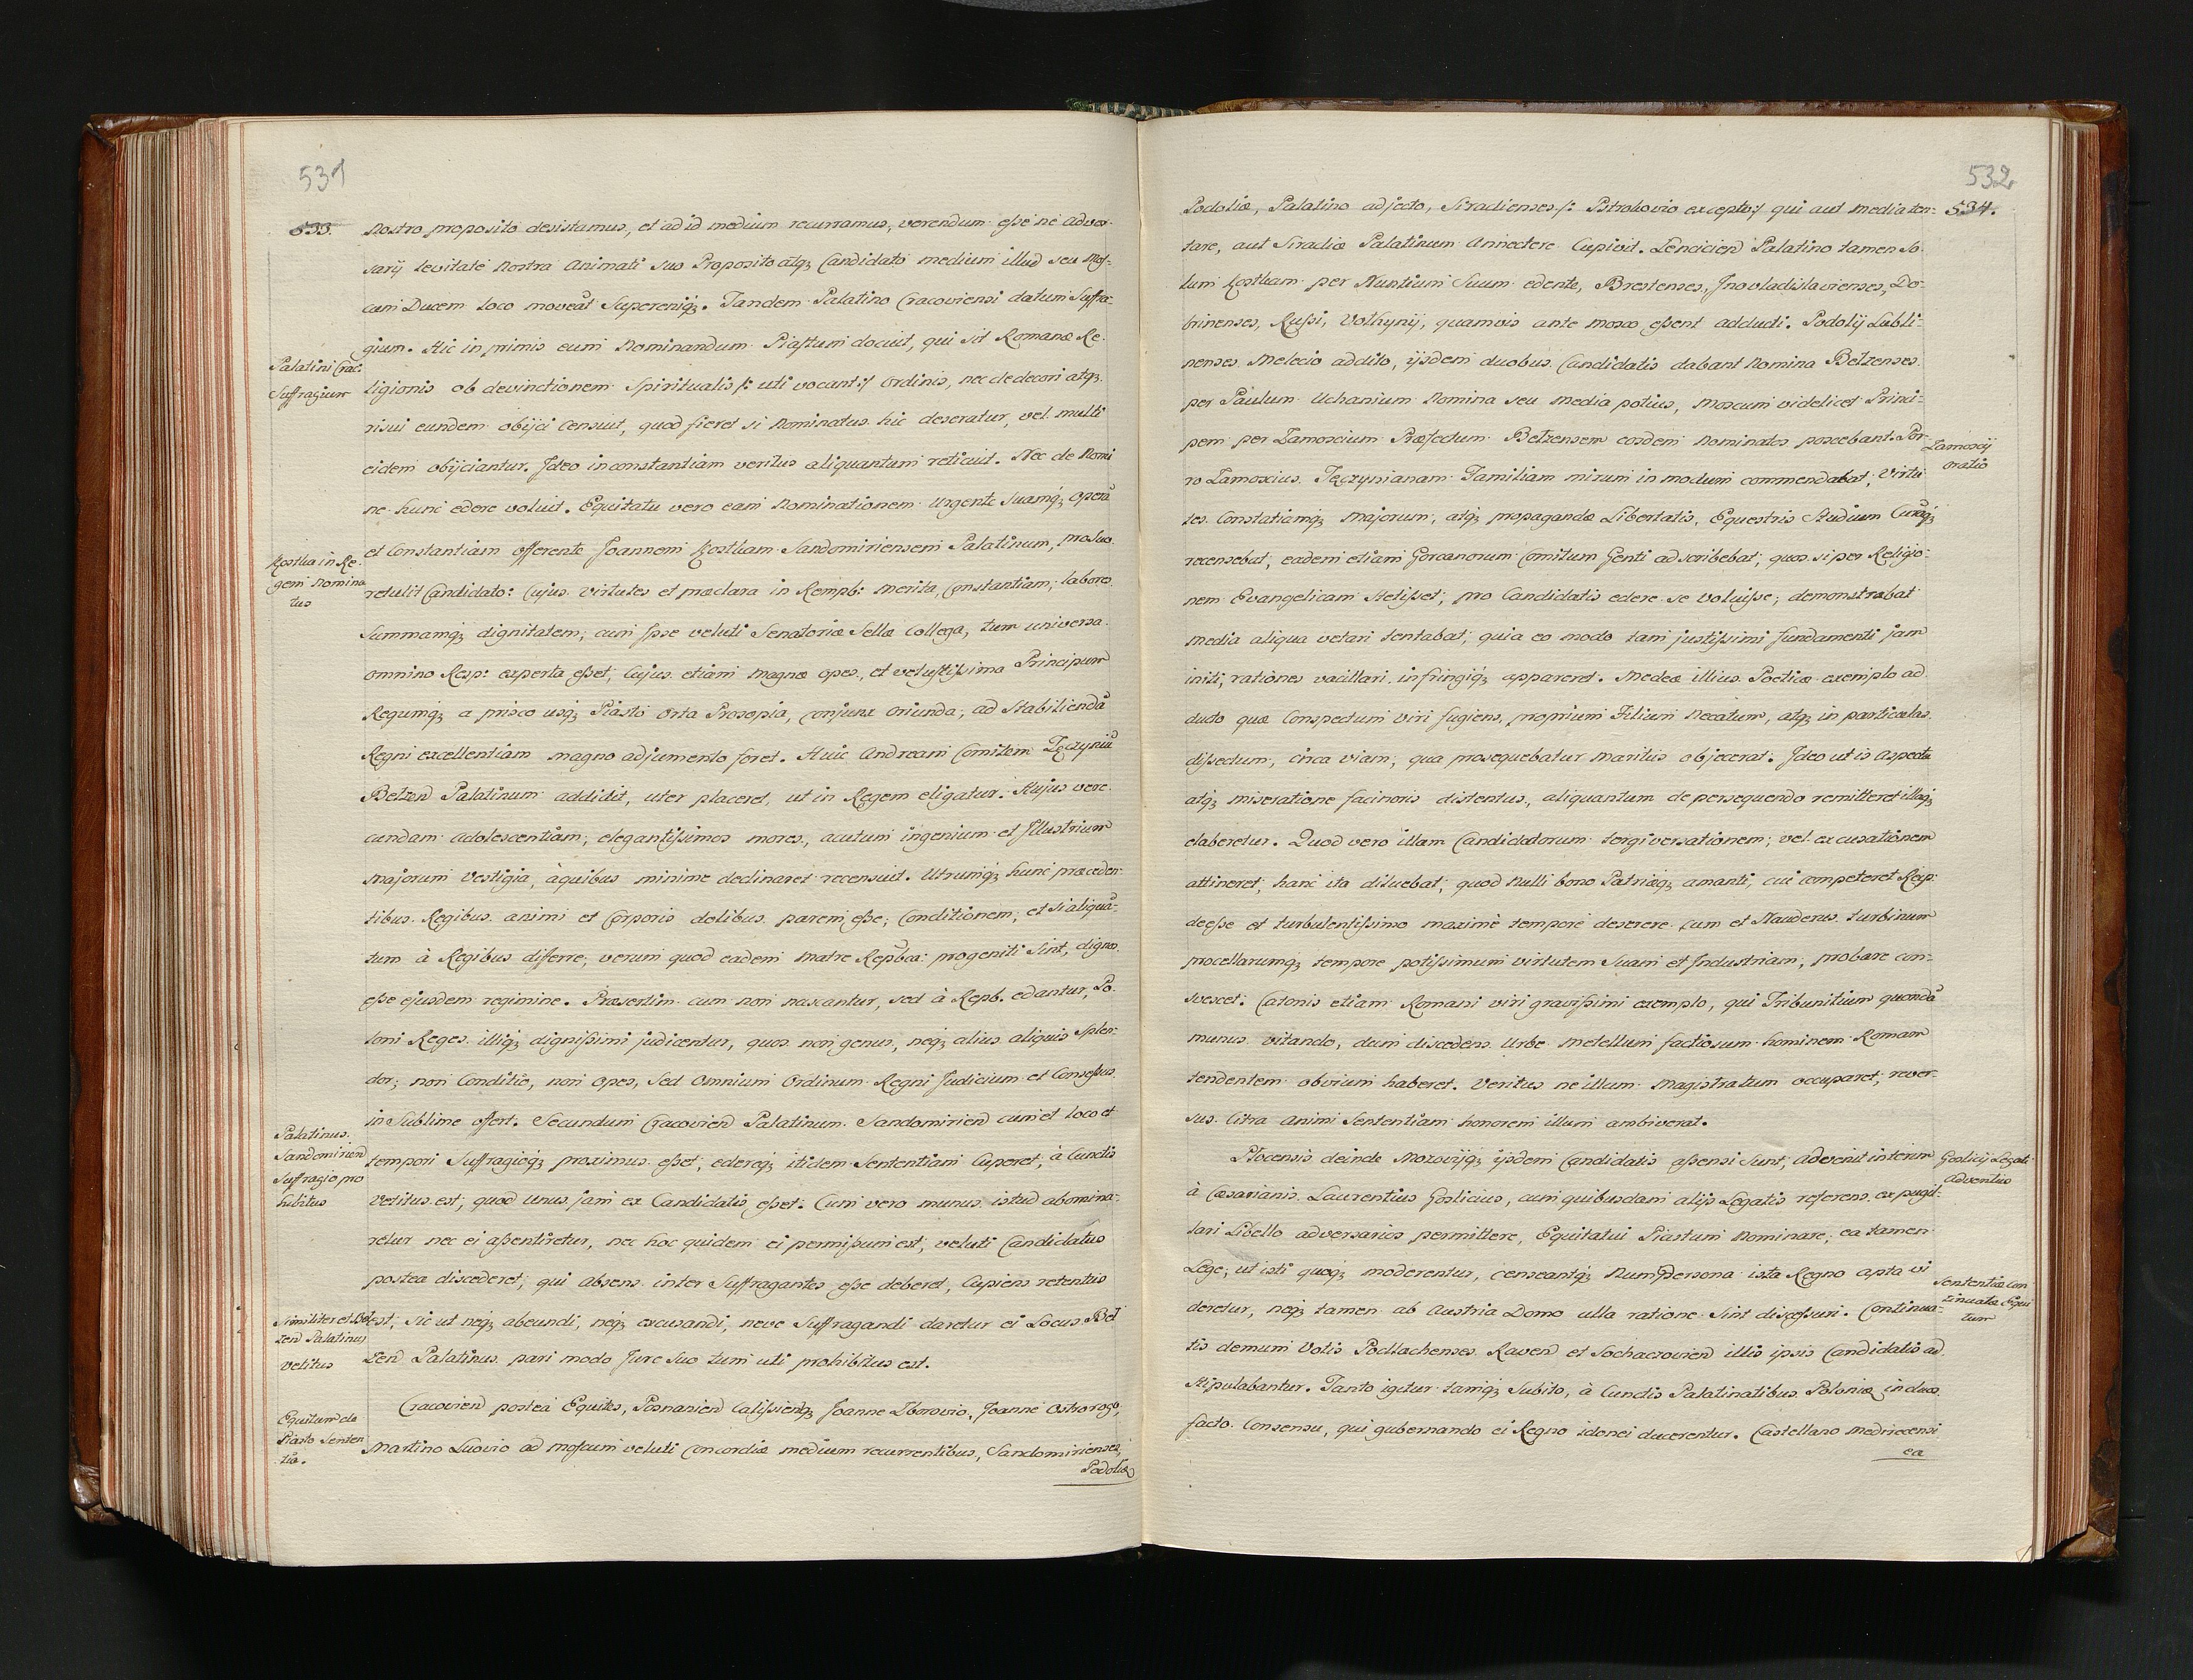 531
533.
Nostro proposito desistamus, et ad id medium recurramus, verendum esse ne adver-
sarij levitate Nostra Animati suo Proposito atq; Candidato medium illud seu Mos-
cum Ducem loco moveāt Superentq;. Tandem Palatino Cracoviensi datum Suffra-
gium. Hic in primis eum Nominandum Piastum docuit, qui sit Romanæ Re-
Palatini Crac:
Suffragium
ligionis ob devinctionem Spiritualis /: uti vocant :/ Ordinis, nec dedecori atq;
risui eundem obijci Censuit, quod fieret si Nominatus hic deseratur, vel multi
eidem obijciantur. Ideo inconstantiam veritus aliquantum reticuit. Nec de Nomi
ne hunc edere voluit. Equitatu vero eam Nominationem urgente Suamq; operā
et Constantiam offerente Joannem Kostkam Sandomiriensem Palatinum, pro Suo
Kostka in Re-
gem Nomina
tus
retulit Candidato: Cujus virtutes et præclara in Rempb: merita, Constantiam, labores
Summamq; dignitatem, cum Ipse veluti Senatoriæ Sellæ Collega, tum universa
omnino Resp: experta esset, Cujus etiam Magnæ opes, et vetustissima Principum
Regumq; a prisco usq; Piasto Orta Prosopia, Conjunx Oriunda, ad Stabiliendā
Regni excellentiam magno adjumento foret. Huic Andream Comitem Tęczyniū
Betzen Palatinum addidit, uter placeret, ut in Regem eligatur. Hujus vere-
cundam adolescentiam, elegantissimos mores, acutum ingenium et Illustrium
Majorum Vestigia, à quibus minime declinaret recensuit. Utrumq; hunc præceden-
tibus Regibus animi et Corporis dotibus parem esse, Conditionem, et si aliquā-
tum à Regibus differre, verum quod eadem Matre Repbca: progeniti Sint, dignos
esse ejusdem regimine. Præsertim cum non nascantur, sed à Repb. edantur, Po-
loni Reges illiq; dignissimi judicentur, quos non genus, neq; alius aliquis splen-
dor, non Conditio, non Opes, Sed Omnium Ordinum Regni Judicium et Consessus
in Sublime offert. Secundum Cracovien Palatinum Sandomirien cum et loco et
Palatinus
Sandomirien
Suffragio pro
hibitus
tempori Suffragioq; proximus esset, edereq; itidem Sententiam Cuperet, à Cunctis
Vetitus est, quod Unus jam ex Candidatis esset. Cum vero munus istud abomina-
retur nec ei assentiretur, nec hoc quidem ei permissum est, veluti Candidatus
postea discederet, qui Absens inter Suffragantes esse deberet, Cupiens retentus
Similiter et Bel
zen Palatinus
Vetitus
est, sic ut neq; abeundi, neq; excusandi, neve Suffragandi daretur ei Locus. Bel
zen Palatinus pari modo Jure Suo tum uti prohibitus est.
Equitum de
Piasto Senten
tia.
Cracovien postea Equites, Posnanien Calissienq; Joanne Zborovio, Joanne Ostrorogo,
Martino Luovio ad Moscum veluti Concordiæ medium recurrentibus, Sandomirienses,
Podoliæ
532
534.
Podoliæ, Palatino adjecto, Siradienses /: Pstrokovio excepto :/ qui aut media ten-
tare, aut Siradiæ Palatinum Annectere Cupivit. Lencicien Palatino tamen So-
lum Kostkam per Nuntium Suum edente, Brestenses, Inovladislavienses, Do-
brinenses, Russi, Volhynij, quamvis ante Mosco essent adducti. Podolij Lubli-
nenses Melecio addito, ijsdem duobus Candidatis dabant Nomina Betzenses
per Paulum Uchanium Nomina seu Media potius, Moscum videlicet Princi-
pem per Zamoscium Præfectum Betzensem eosdem Nominatos poscebant. Por-
Zamoscij
oratio
ro Zamoscius Tęczynianam Familiam mirum in modum commendabat, Virtu
tes Constatiamq; Majorum, atq; propagandæ Libertatis, Equestris Studium Curāq;
recensebat, eadem etiam Gorcanorum Comitum Genti adscribebat, quos si per Religio-
nem Evangelicam Stetisset, pro Candidatis edere se Voluisse, demonstrabat
Media aliqua vetari tentabat, quia eo modo tam justissimi fundamenti jam
initi, rationes vacillari infringiq; appareret. Medeæ illius Poeticæ exemplo ad
ducto quæ Conspectum viri fugiens, proprium Filium Necatum, atq; in particulas
dissectum, circa viam, qua prosequebatur Maritus objecerat. Ideo ut is Aspectu
atq; miseratione facinoris distentus, aliquantum de persequendo remitteret illaq;
elaberetur. Quod vero illam Candidatorum tergiversationem, vel excusationem
attineret, hanc ita diluebat, quod Nulli bono Patriæq; amanti, cui competeret Reip:
deesse et turbulentissimo maximè tempore deserere cum et Nauderus turbinum
procellarumq; tempore potissimum virtutem Suam et Industriam, probare con-
svescet. Catonis etiam Romani viri gravissimi exemplo, qui Tribunitium quondā
munus vitando, dum discedens Urbe Metellum factiosum hominem Romam
tendentem obvium haberet. Veritus ne illum Magistratum occuparet, rever-
sus Citra Animi Sententiam honorem illum ambiverat.
Plocensis deinde Mazovijq; ijsdem Candidatis assensi Sunt, Advenit interim
Goslicij Legati
Adventus
à Cæsarianis Laurentius Goslicius, cum quibusdam alijs Legatis referens ex pugil-
lari Libello adversarios permittere, Equitatui Piastum Nominare, ea tamen
Lege, ut isti quoq; moderentur, Censeantq; Num Persona ista Regno apta vi
Sententiæ con
tinuatæ Equi
tum
deretur, neq; tamen ab Austria Domo ulla ratione Sint discessuri. Continua-
tis demum Votis Podlachenses Raven et Sochaczovien illis ipsis Candidatis ad
stipulabantur. Tanto igitur tamq; Subito, à Cunctis Palatinatibus Poloniæ in duos
facto Consensu, qui gubernando ei Regno idonei ducerentur. Castellano Medricensi
ea